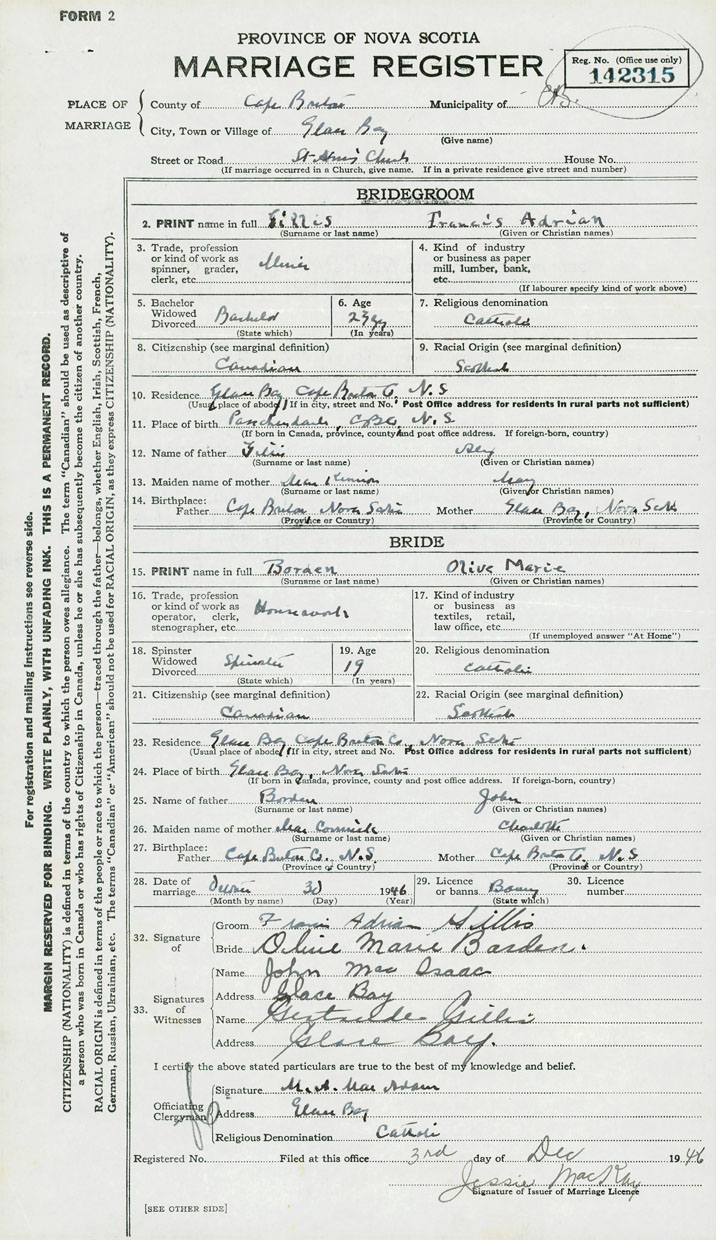 FORM 2
PROVINCE OF NOVA SCOTIA
MARRIAGE REGISTER
Reg. No. (Office use only)
142315
PLACE OF MARRIAGE
County of Cape Breton Municipality of
City, Town or Village of Glace Bay
(Give name)
Street or Road St Ann's Church House No.
(If marriage occurred in a Church, give name. If in a private residence give street and number)
BRIDEGROOM
2. PRINT name in full Gillis Francis Adrian
(Surname or last name) (Given or Christian names)
3. Trade, profession or kind of work as spinner, grader, clerk, etc. Miner
4. Kind of industry or business as paper mill, lumber, bank, etc.
(If labourer specify kind of work above)
5. Bachelor Widowed Divorced Bachelor
(State which)
6. Age 23
(In years)
7. Religious denomination
Catholic
8. Citizenship (see marginal definition)
Canadian
9. Racial Origin (see marginal definition)
Scottish
10. Residence Glace Bay Cape Breton Co, N.S
(Usual place of abode) (If in city, street and No. Post Office address for residents in rural parts not sufficient)
11. Place of birth N.S
(If born in Canada, province, county and post office address. If foreign-born, country)
12. Name of father Gillis
(Surname or last name) (Given or Christian names)
13. Maiden name of mother Mac Kinnon Mary
(Surname or last name) (Given or Christian names)
14. Birthplace:
Father Cape Breton Nova Scotia Mother Glace Bay, Nova Scotia
(Province or Country) (Province or Country)
BRIDE
15. PRINT name in full Borden Olive Marie
(Surname or last name) (Given or Christian names)
16. Trade, profession or kind of work as operator, clerk, stenographer, etc. Housework
17. Kind of industry or business as textiles, retail, law office, etc.
(If unemployed answer "At Home")
18. Spinster Widowed Divorced Spinster
(State which)
19. Age 19
(In years)
20. Religious denomination
Catholic
21. Citizenship (see marginal definition)
Canadian
22. Racial Origin (see marginal definition)
Scottish
23. Residence Glace Bay Cape Breton Co., Nova Scotia
(Usual place of abode) (If in city, street and No. Post Office address for residents in rural parts not sufficient)
24. Place of birth Glace Bay, Nova Scotia
(If born in Canada, province, county and post office address. If foreign-born, country)
25. Name of father Borden John
(Surname or last name) (Given or Christian names)
26. Maiden name of mother Mac Cormick Charlotte
(Surname or last name) (Given or Christian names)
27. Birthplace:
Father Cape Breton Co., N.S. Mother Cape Breton Co, N.S
(Province or Country) (Province or Country)
28. Date of marriage 1946
(Month by name) (Day) (Year)
29. Licence or banns
(State which)
30. Licence number
32. Signature of
Groom Francis Adrian Gillis
Bride Olive Marie Borden.
33. Signatures of Witnesses
Name John Mac Isaac
Address Glace Bay
Name Gertrude Gillis
Address Glace Bay.
I certify the above stated particulars are true to the best of my knowledge and belief.
Officiating Clergyman
Signature M. A. Mac Adam
Address Glace Bay
Religious Denomination Catholic
Registered No. Filed at this office 3rd day of Dec 1946
Jessie MacKay
Signature of Issuer of Marriage Licence
[SEE OTHER SIDE]
For registration and mailing instructions see reverse side.
MARGIN RESERVED FOR BINDING. WRITE PLAINLY, WITH UNFADING INK. THIS IS A PERMANENT RECORD.
CITIZENSHIP (NATIONALITY) is defined in terms of the country to which the person owes allegiance. The term "Canadian" should be used as descriptive of
a person who was born in Canada or who has rights of Citizenship in Canada, unless he or she has subsequently become the citizen of another country.
RACIAL ORIGIN is defined in terms of the people or race to which the person—traced through the father—belongs, whether English, Irish, Scottish, French,
German, Russian, Ukrainian, etc. The terms "Canadian" or "American" should not be used for RACIAL ORIGIN, as they express CITIZENSHIP (NATIONALITY).